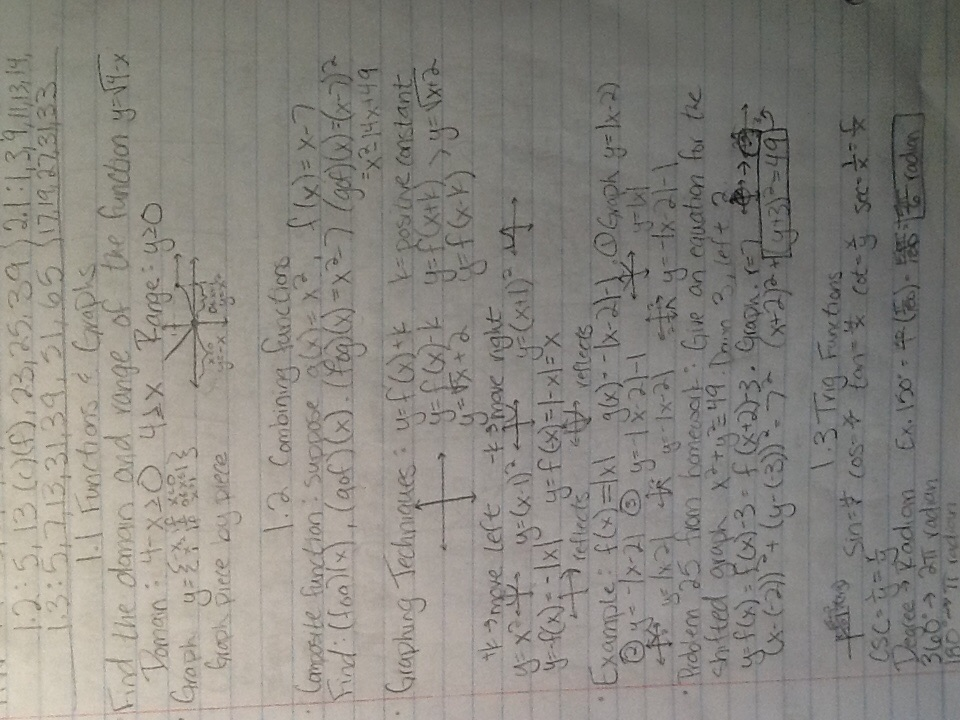 1.2: 5, 13 (c)(f), 23, 25, 39 } 2.1: 1, 3, 9, 11, 13, 14,
1.3: 5, 7, 13, 31, 39, 51, 65 { 17, 19, 27, 31, 33
1.1 Functions & Graphs
Find the domain and range of the function y=√4-x
Domain: 4-x≥0 4≥x Range: y≥0
· Graph y={
Graph piece by piece
1.2 Combining functions
· Composite function: suppose g(x)=x², f(x)=x-7
Find: (fog)(x), (gof)(x). (fog)(x)=x²-7 (gof)(x)=(x-7)²
=x²-14x+49
· Graphing Techniques: y=f(x)+k k=positive constant
y=f(x)-k y=f(x+k)
y=√x+2 y=f(x-k) > y=√x+2
+k→move left -k→move right
y=x² y=(x-1)² y=(x+1)²
y=-f(x)=-|x| y=f(-x)=|-x|=x
reflects reflects
· Example: f(x)=|x| g(x)=-|x-2|-1 ① Graph y=|x-2|
② y=-|x-2| ③ y=-|x-2|-1 y=|x|
y=|x-2| y=-|x-2| y=-|x-2|-1
· Problem 25 from homework: Give an equation for the
shifted graph x²+y²=49 Down 3, left 2
y=f(x)=f(x)-3=f(x+2)-3. Graph. r=7
(x-(-2))²+(y-(-3))²=7² (x+2)²+(y+3)²=49
1.3 Trig Functions
Sin=y/r cos=x/r tan=y/x cot=x/y sec=1/x=r/x
csc=1/y=r/y
Degree→Radian Ex. 150°
360°→2π radian
180°→π radian